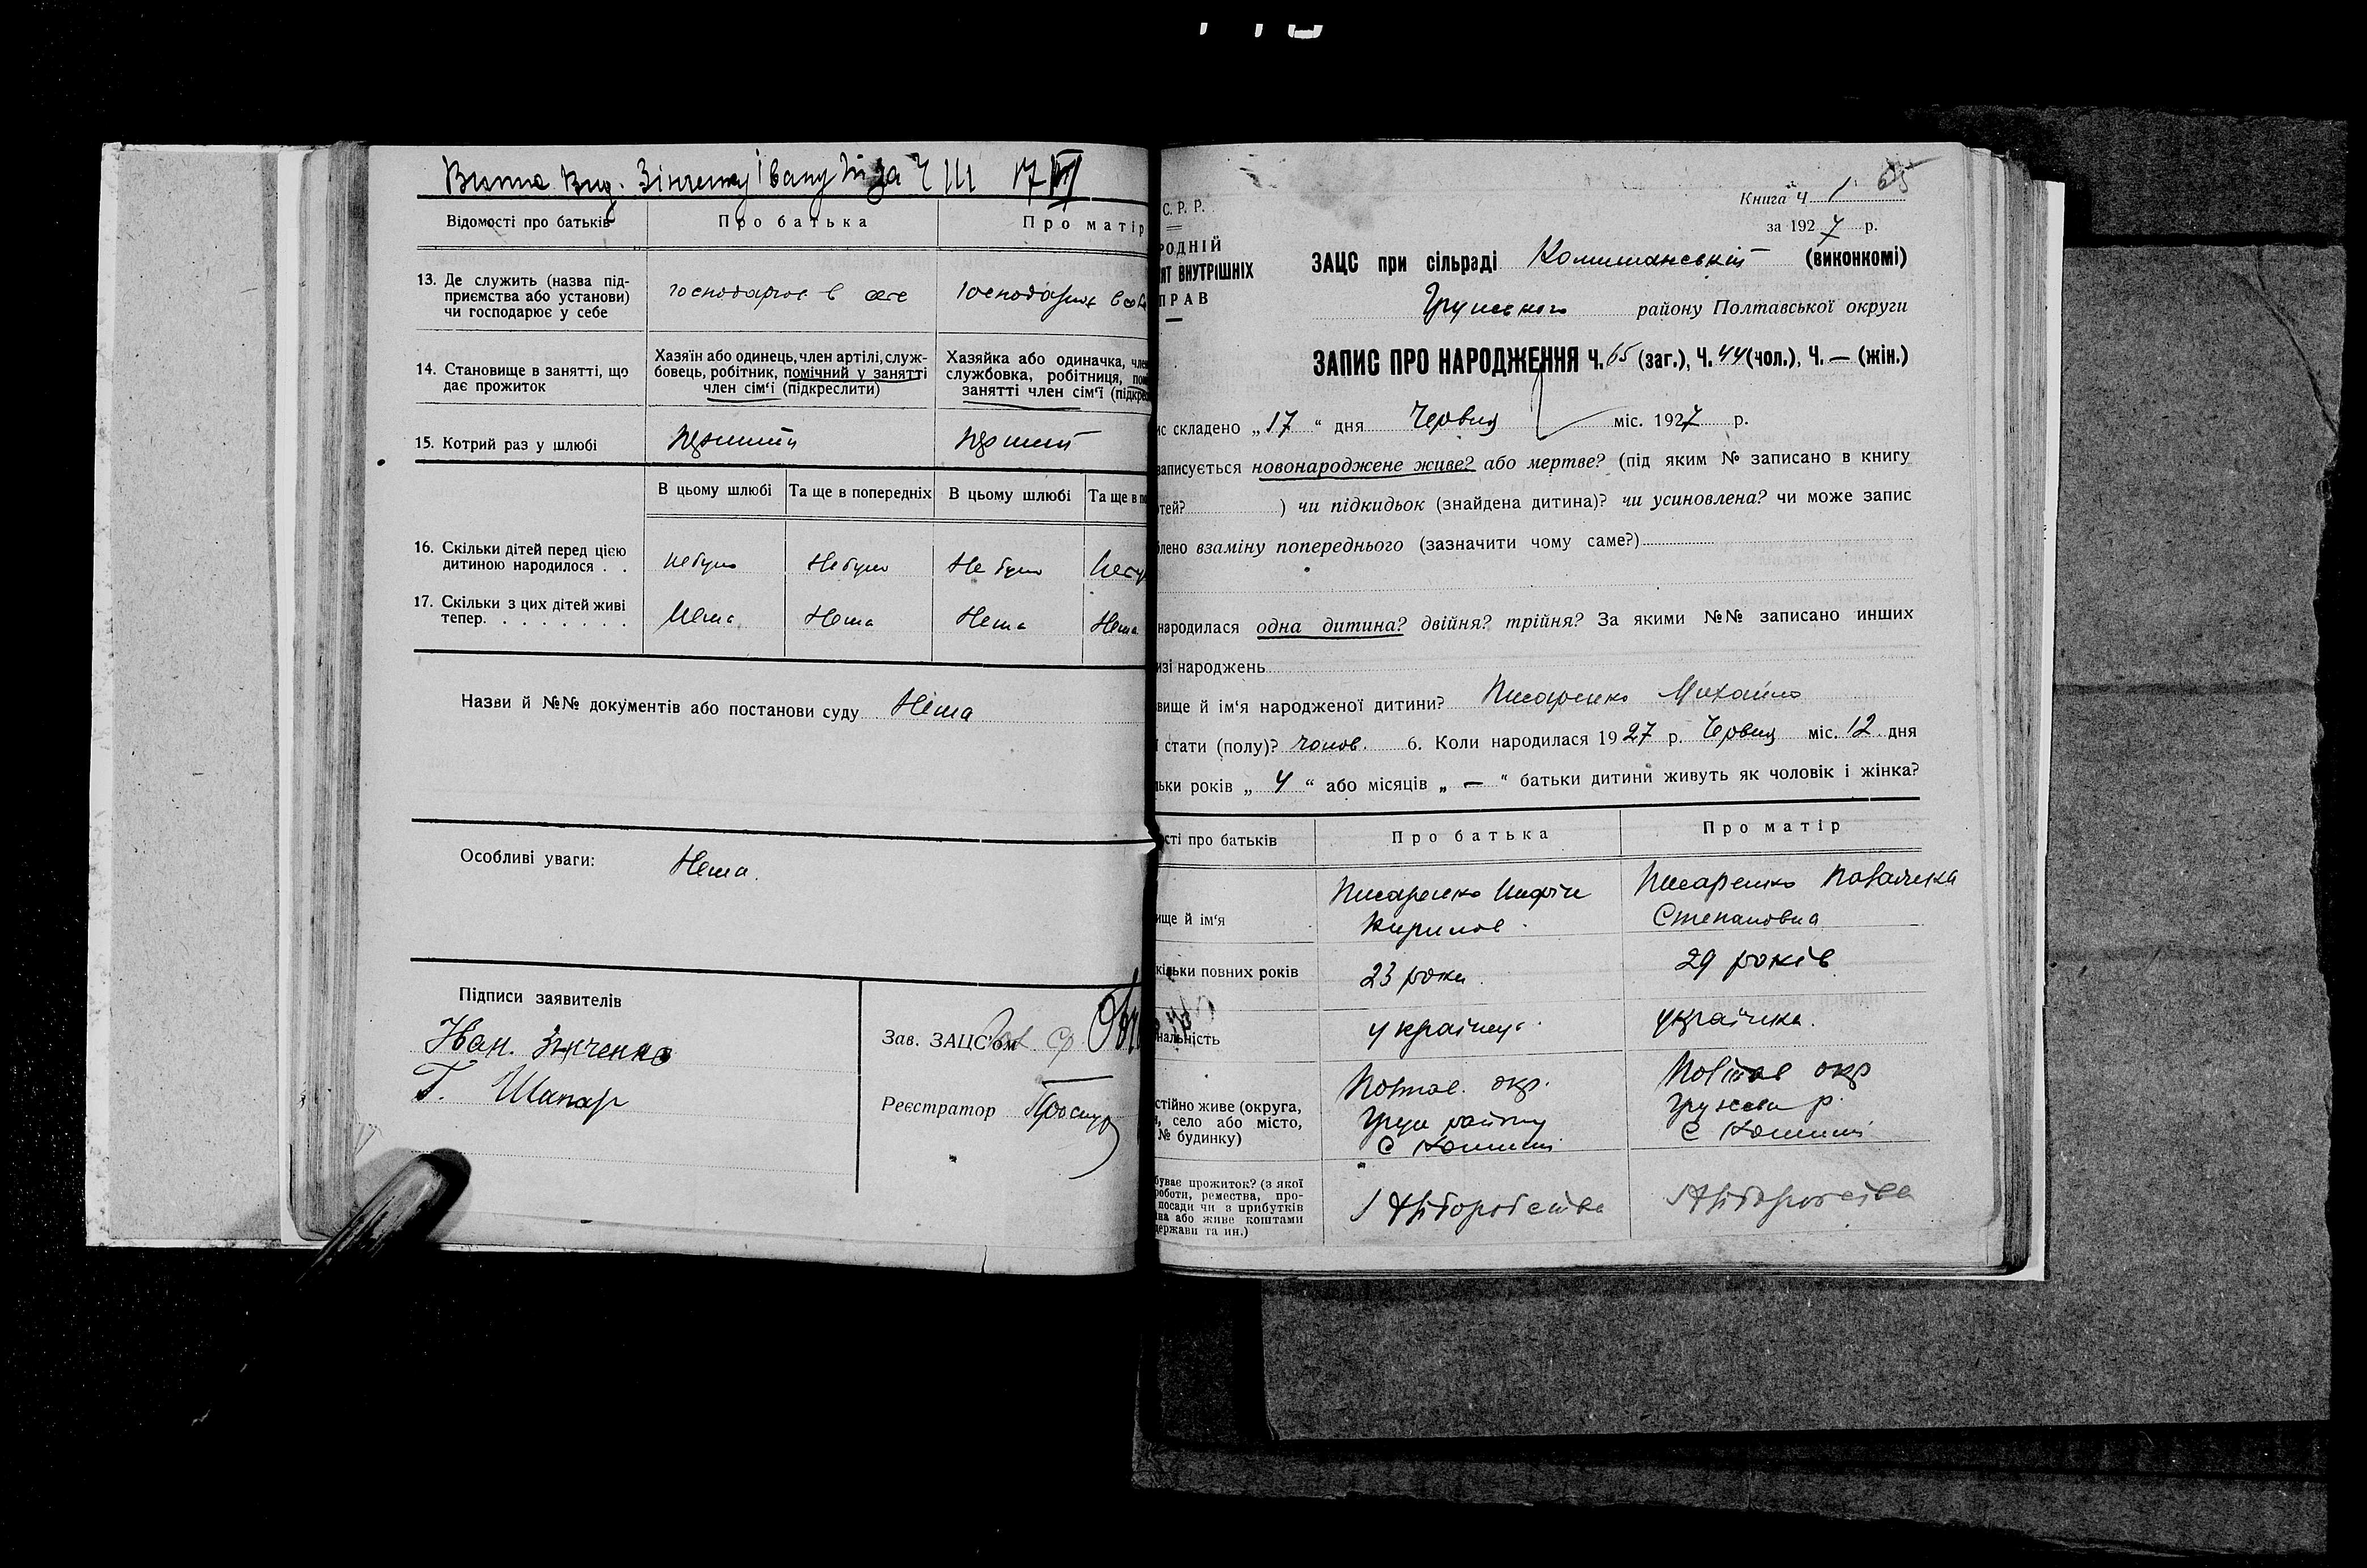 Зінченку Івану за Ч 17/VI
Відомості про батьків
Про батька
Про матір
13. Де служить (назва підприємства або установи) чи господарює у себе
господарює в себе
господарює в себе
14. Становище в занятті, що дає прожиток
Хазяїн або одинець, член артілі, службовець, робітник, помічний у занятті член сім'ї (підкреслити)
Хазяйка або одиначка, член
службовка, робітниця, пом
занятті член сім'ї (підкре
15. Котрий раз у шлюбі
перший
перший
В цьому шлюбі
Та ще в попередніх
В цьому шлюбі
Та ще в по
16. Скільки дітей перед цією дитиною народилося . .
не було
не було
не було
17. Скільки з цих дітей живі тепер. . . . . . . .
Нема
Нема
Нема
Нема
Назви й №№ документів або постанови суду Нема
Особливі уваги: Нема.
Підписи заявителів
Іван. Зінченко
Т. Шапар
Зав. ЗАЦС'ом
Реєстратор
65
Книга Ч 1
за 1927 р.
С. Р. Р.
РОДНІЙ
ЯТ ВНУТРІШНІХ
ПРАВ
ЗАЦС при сільраді Комишанській (виконкомі)
Грунського району Полтавської округи
ЗАПИС ПРО НАРОДЖЕННЯ Ч. 65 (заг.), Ч. 44 (чол.), Ч. — (жін.)
ис складено „17“ дня Червня міс. 1927 р.
записується новонароджене живе? або мертве? (під яким № записано в книгу
ртей? ) чи підкидьок (знайдена дитина)? чи усиновлена? чи може запис
блено взаміну попереднього (зазначити чому саме?)
народилася одна дитина? двійня? трійня? За якими №№ записано инших
изі народжень
вище й ім'я народженої дитини? Писаренко Михайло
ї стати (полу)? чолов. 6. Коли народилася 1927 р. Червня міс. 12 дня
льки років „4“ або місяців „—“ батьки дитини живуть як чоловік і жінка?
сті про батьків
Про батька
Про матір
ище й ім'я
Писаренко
Кирилов.
Писаренко
Степановна
кільки повних років
23 роки.
29 років
нальність
українець.
українка.
стійно живе (округа,
н, село або місто,
№ будинку)
Полтав. окр.
Грун району
С Комиші
Полтав окр
р.
С Комиші
буває прожиток? (з якої
роботи, ремества, про-
посади чи з прибутків
на або живе коштами
держави та ин.)
Хліборобства
Хліборобства